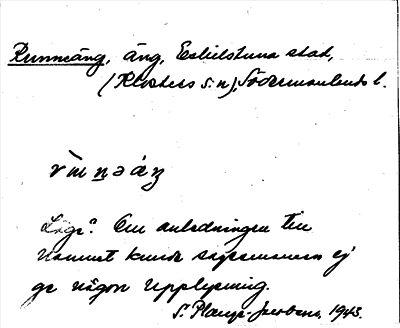 Runneäng, äng, Eskilstuna stad,
(Klosters s:n), Södermanlands l.
Läge? Om anledningen till
namnet kunde sagesmannen ej
ge någon upplysning.
S. 1943.